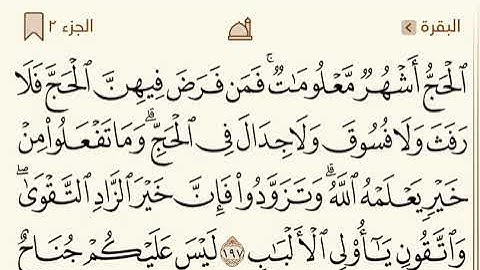 البقرة الجزء ٢
ٱلْحَجُّ أَشْهُرٌ مَّعْلُومَٰتٌ ۚ فَمَن فَرَضَ فِيهِنَّ ٱلْحَجَّ فَلَا
رَفَثَ وَلَا فُسُوقَ وَلَا جِدَالَ فِى ٱلْحَجِّ ۗ وَمَا تَفْعَلُوا۟ مِنْ
خَيْرٍ يَعْلَمْهُ ٱللَّهُ ۗ وَتَزَوَّدُوا۟ فَإِنَّ خَيْرَ ٱلزَّادِ ٱلتَّقْوَىٰ ۖ
وَٱتَّقُونِ يَٰٓأُو۟لِى ٱلْأَلْبَٰبِ ١٩٧ لَيْسَ عَلَيْكُمْ جُنَاحٌ